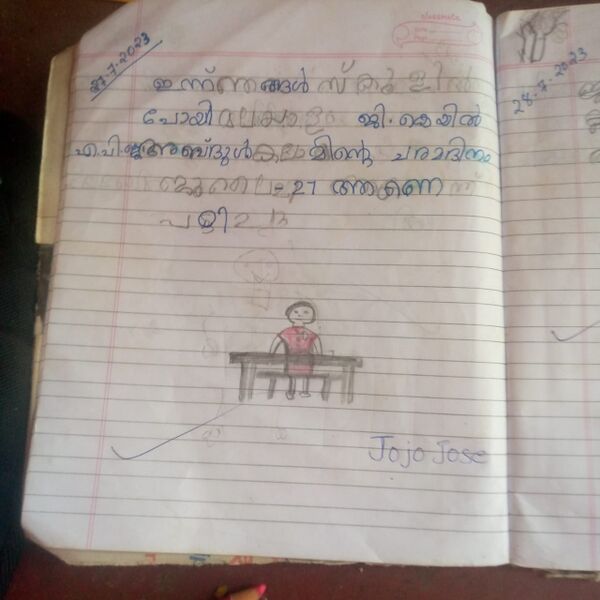 classmate
27.7.2023
ഇന്ന് ഞങ്ങൾ സ്കൂളിൽ
പോയി മലയാളം ജി.കെയിൽ
എ.പി.ജെ അബ്ദുൾ കലാമിന്റെ ചരമദിനം
ജൂലൈ 27 ആണെന്ന്
പഠിച്ചു
Jojo Jose
28.7.2023